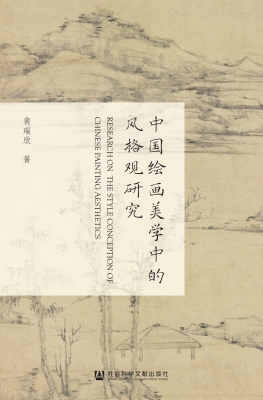 中国绘画美学中的
风格观研究
RESEARCH ON THE STYLE CONCEPTION OF
CHINESE PAINTING AESTHETICS
裴瑞欣 著
社会科学文献出版社
SOCIAL SCIENCES ACADEMIC PRESS (CHINA)